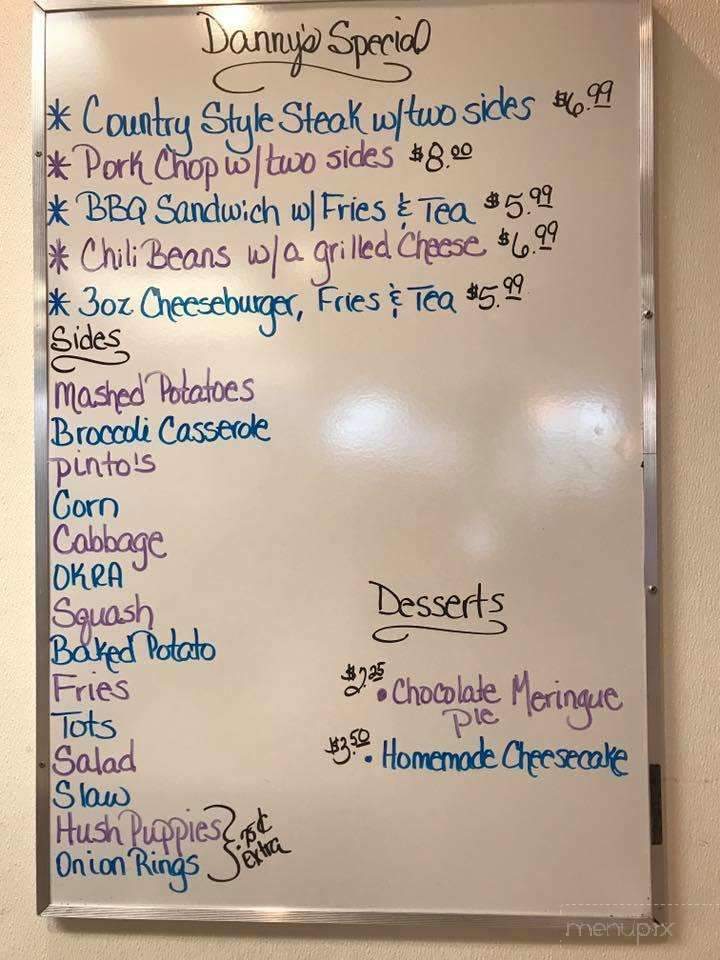 Danny's Special
* Country Style Steak w/two sides $6.99
* Pork Chop w/two sides $8.00
* BBQ Sandwich w/ Fries & Tea $5.99
* Chili Beans w/a grilled Cheese $6.99
* 3oz Cheeseburger, Fries & Tea $5.99
Sides
Mashed Potatoes
Broccoli Casserole
pinto's
Corn
Cabbage
OKRA
Squash
Baked Potato
Fries
Tots
Salad
Slaw
Hush Puppies
Onion Rings
.75¢
extra
Desserts
$2.25 • Chocolate Meringue
pie
$3.50 • Homemade Cheesecake
menupix